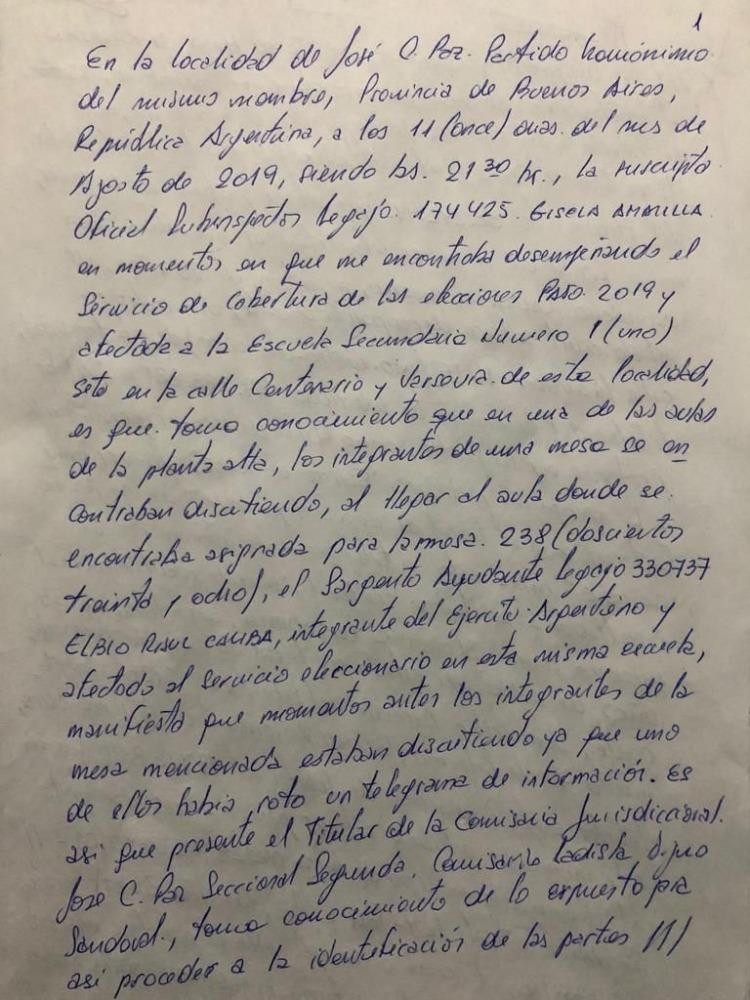 1
En la localidad de José C. Paz. Partido homónimo
del mismo nombre, Provincia de Buenos Aires,
República Argentina, a los 11 (once) dias. del mes de
Agosto de 2019, siendo hs. 21 30 hr., la suscripta
Oficial Subinspector legajo. 174425. GISELA
en momentos en que me encontraba desempeñando el
Servicio de Cobertura de las elecciones PASO. 2019 y
afectada a la Escuela Secundaria Numero 1 (uno)
sito en la calle Centenario y Varsovia. de esta localidad,
es que. tomo conocimiento que en una de las aulas
de la planta alta, los integrantes de una mesa se en
contraban discutiendo, al llegar al aula donde se.
encontraba asignada para la mesa. 238 (doscientos
treinta y ocho), el Sargento Ayudante legajo 330737
ELBIO RAUL, integrante del Ejercito Argentino y
afectado al servicio eleccionario en esta misma escuela,
manifiesta que momentos antes los integrantes de la
mesa mencionada estaban discutiendo ya que uno
de ellos habia roto un telegrama de información. Es
asi que presente el Titular de la Comisaria Jurisdiccional.
Jose C. Paz Seccional Segunda, Comisario
Sandoval., toma conocimiento de lo expuesto para
asi proceder a la identificación de las partes ///